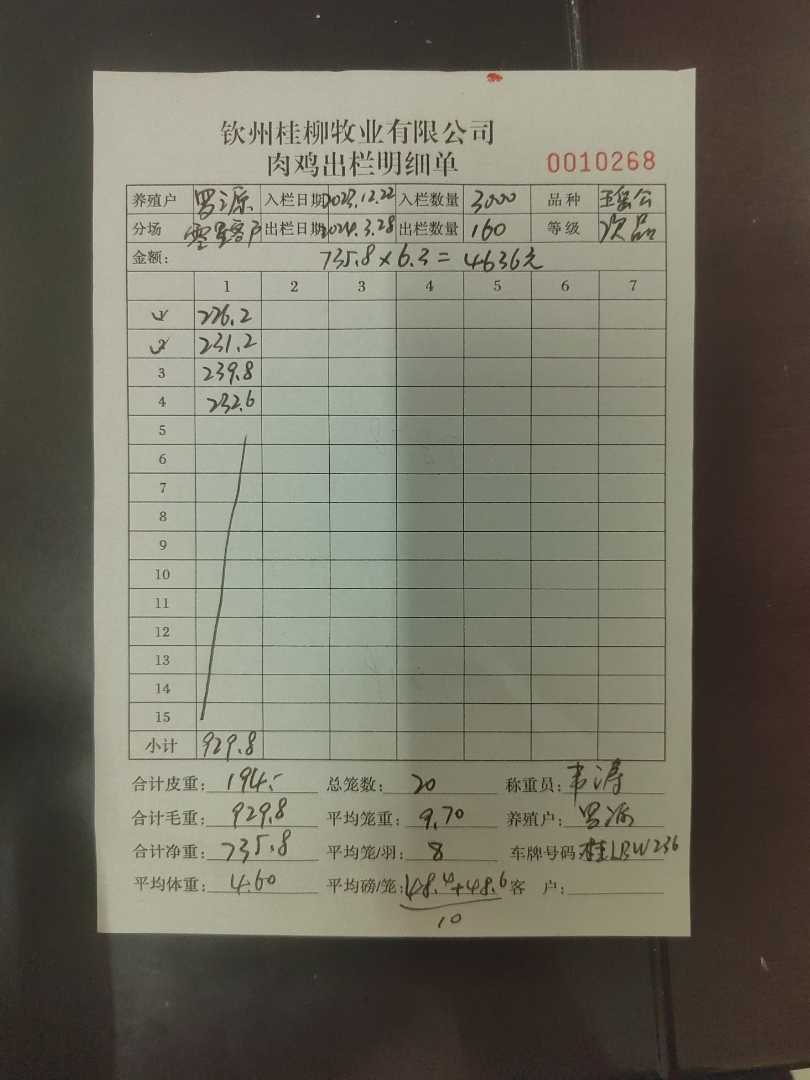 钦州桂柳牧业有限公司
肉鸡出栏明细单 0010268
养殖户 罗源 入栏日期 2023.12.22 入栏数量 3000 品种
分场 零星客户 出栏日期 2024.3.28 出栏数量 160 等级 次品
金额: 735.8×6.3=4636元
1 2 3 4 5 6 7
1 226.2
2 231.2
3 239.8
4 232.6
5
6
7
8
9
10
11
12
13
14
15
小计 929.8
合计皮重: 194.- 总笼数: 20 称重员: 韦涛
合计毛重: 929.8 平均笼重: 9.70 养殖户: 罗源
合计净重: 735.8 平均笼/羽: 8 车牌号码: 桂LBW236
平均体重: 4.60 平均磅/笼: 48.4+48.6 客 户:
10